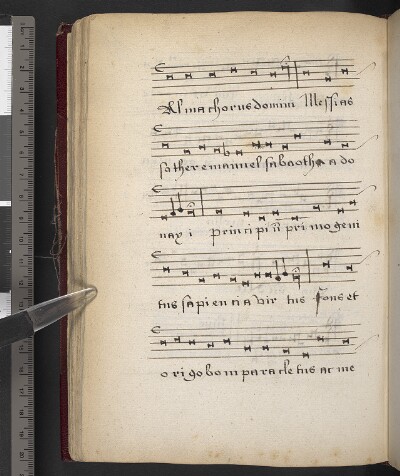 Alma chorus domini Messias
sother emanuel sabaoth a do
nay i principiū primogeni
tus sapientia vir tus Fons et
origo bom paracletus ac me